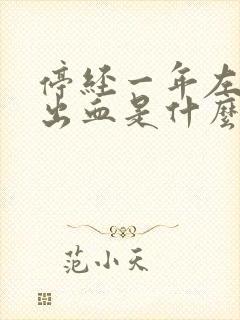 停经一年左
出血是什麼
范小天